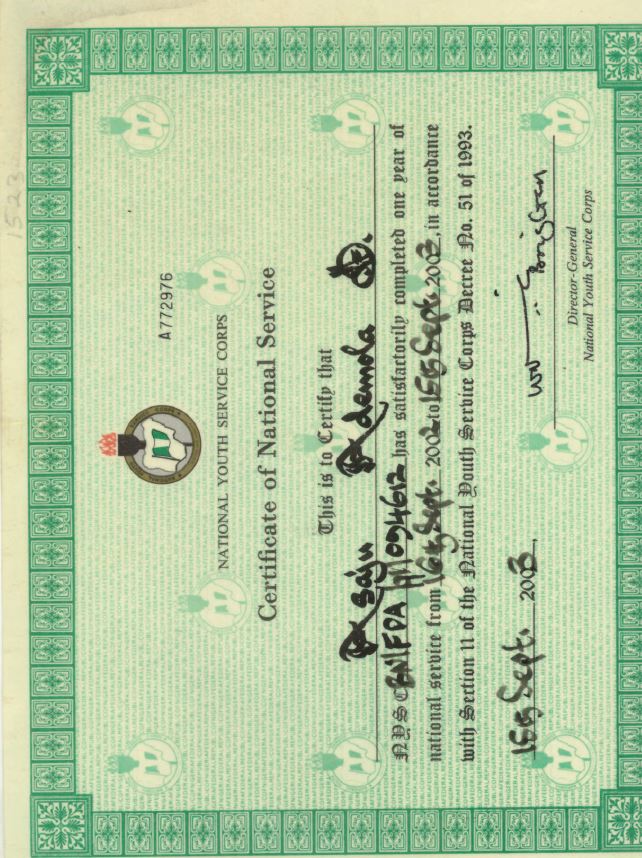 1523
A772976
NATIONAL YOUTH SERVICE CORPS
Certificate of National Service
This is to Certify that
demola
NYSC has satisfactorily completed one year of
national service from 16th Sept. 2002 to 15th Sept. 2003, in accordance
with Section 11 of the National Youth Service Corps Decree No. 51 of 1993.
15th Sept. 2003
Director-General
National Youth Service Corps